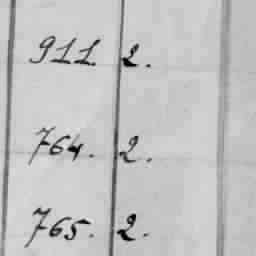 911. 2.
764. 2.
765. 2.